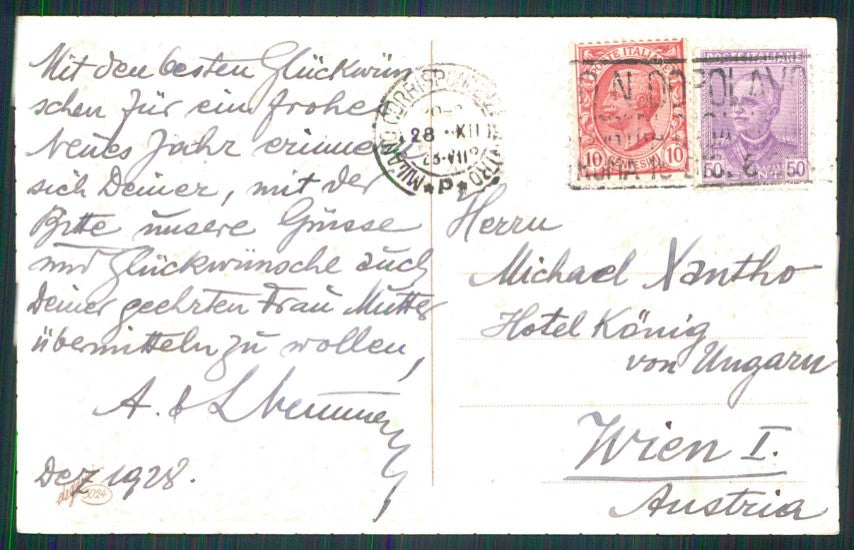 Mit den besten Glückwün
schen für ein frohes
Neues Jahr erinnert
sich Deiner, mit der
Bitte unsere Grüsse
und Glückwünsche auch
Deiner geehrten Frau Mutter
übermitteln zu wollen,
A.
Dez 1928.
5024
MILANO CORRISPONDENZE
28 XII
*P*
POSTE ITALIANE
10 10
POSTE ITALIANE
50 CENT. 50
N. DOPOLAVO
ROMA
Herrn
Michael Xantho
Hotel König
von Ungarn
Wien I.
Austria